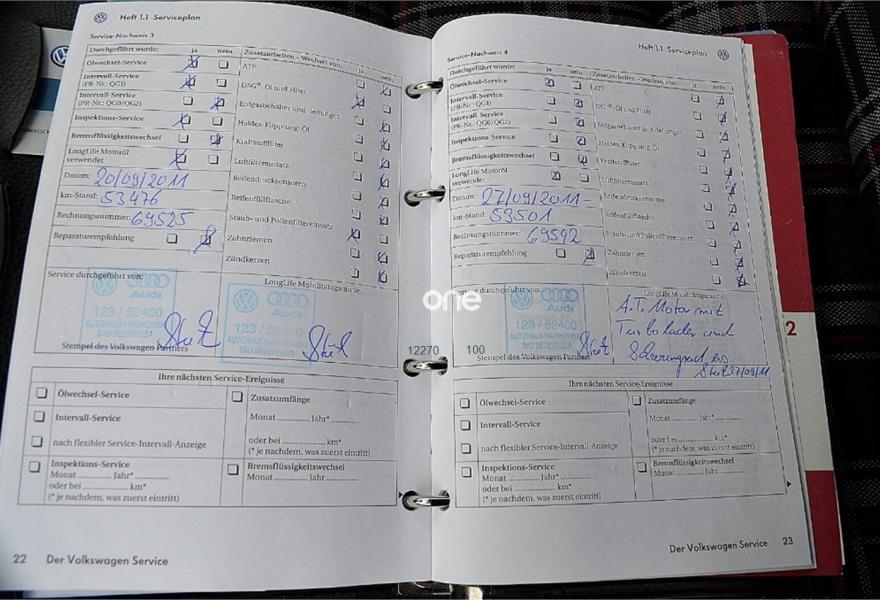 Heft 1.1 Serviceplan
Service-Nachweis 3
Durchgeführt wurde: ja nein
Ölwechsel-Service
Intervall-Service
(PR-Nr.: QG1)
Intervall-Service
(PR-Nr.: QG0/QG2)
Inspektions-Service
Bremsflüssigkeitswechsel
LongLife Motoröl
verwendet
Datum: 20/09/2011
km-Stand: 53476
Rechnungsnummer: 69525
Reparaturempfehlung
Zusatzarbeiten - Wechsel von: ja nein
ATF
DSG®, Öl und Filter
Erdgasbehälter und -leitungen
Haldex Kupplung Öl
Kraftstofffilter
Luftfiltereinsatz
Reifendrucksensoren
Reifenfüllflasche
Staub- und Pollenfiltereinsatz
Zahnriemen
Zündkerzen
Service durchgeführt von:
LongLife Mobilitätsgarantie
Audi
123 / 52400
Audi
123 / 52400
Stempel des Volkswagen Partners
Ihre nächsten Service-Ereignisse
Ölwechsel-Service
Intervall-Service
nach flexibler Service-Intervall-Anzeige
Inspektions-Service
Monat Jahr*
oder bei km*
(* je nachdem, was zuerst eintritt)
Zusatzumfänge
Monat Jahr*
oder bei km*
(* je nachdem, was zuerst eintritt)
Bremsflüssigkeitswechsel
Monat Jahr*
22 Der Volkswagen Service
Heft 1.1 Serviceplan
Service-Nachweis 4
Durchgeführt wurde: ja nein
Ölwechsel-Service
Intervall-Service
(PR-Nr.: QG1)
Intervall-Service
(PR-Nr.: QG0/QG2)
Inspektions Service
Bremsflüssigkeitswechsel
LongLife Motoröl
Datum: 27/09/2011-
km-Stand: 53501
Rechnungsnummer: 69592
Reparaturempfehlung
Zusatzarbeiten - Wechsel von: ja nein
ATF
DSG®, Öl und Filter
Erdgasbehälter und -leitungen
Haldex Kupplung Öl
Kraftstofffilter
Luftfiltereinsatz
Reifendrucksensoren
Reifenfüllflasche
Staub- und Pollenfiltereinsatz
Zahnriemen
Zündkerzen
Service durchgeführt von:
LongLife Mobilitätsgarantie
one
Audi
123 / 52400
A.T. Motor mit
Turbolader und
27/09/11
12270 100
Stempel des Volkswagen Partners
Ihre nächsten Service-Ereignisse
Ölwechsel-Service
Intervall-Service
nach flexibler Service-Intervall-Anzeige
Inspektions-Service
Monat Jahr*
oder bei km*
(* je nachdem, was zuerst eintritt)
Zusatzumfänge
Monat Jahr*
oder bei km*
(* je nachdem, was zuerst eintritt)
Bremsflüssigkeitswechsel
Monat Jahr*
Der Volkswagen Service 23
2